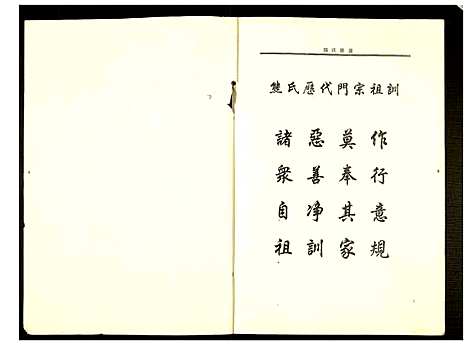 熊氏宗譜
熊氏歷代門宗祖訓
諸惡莫作
衆善奉行
自净其意
祖訓家規